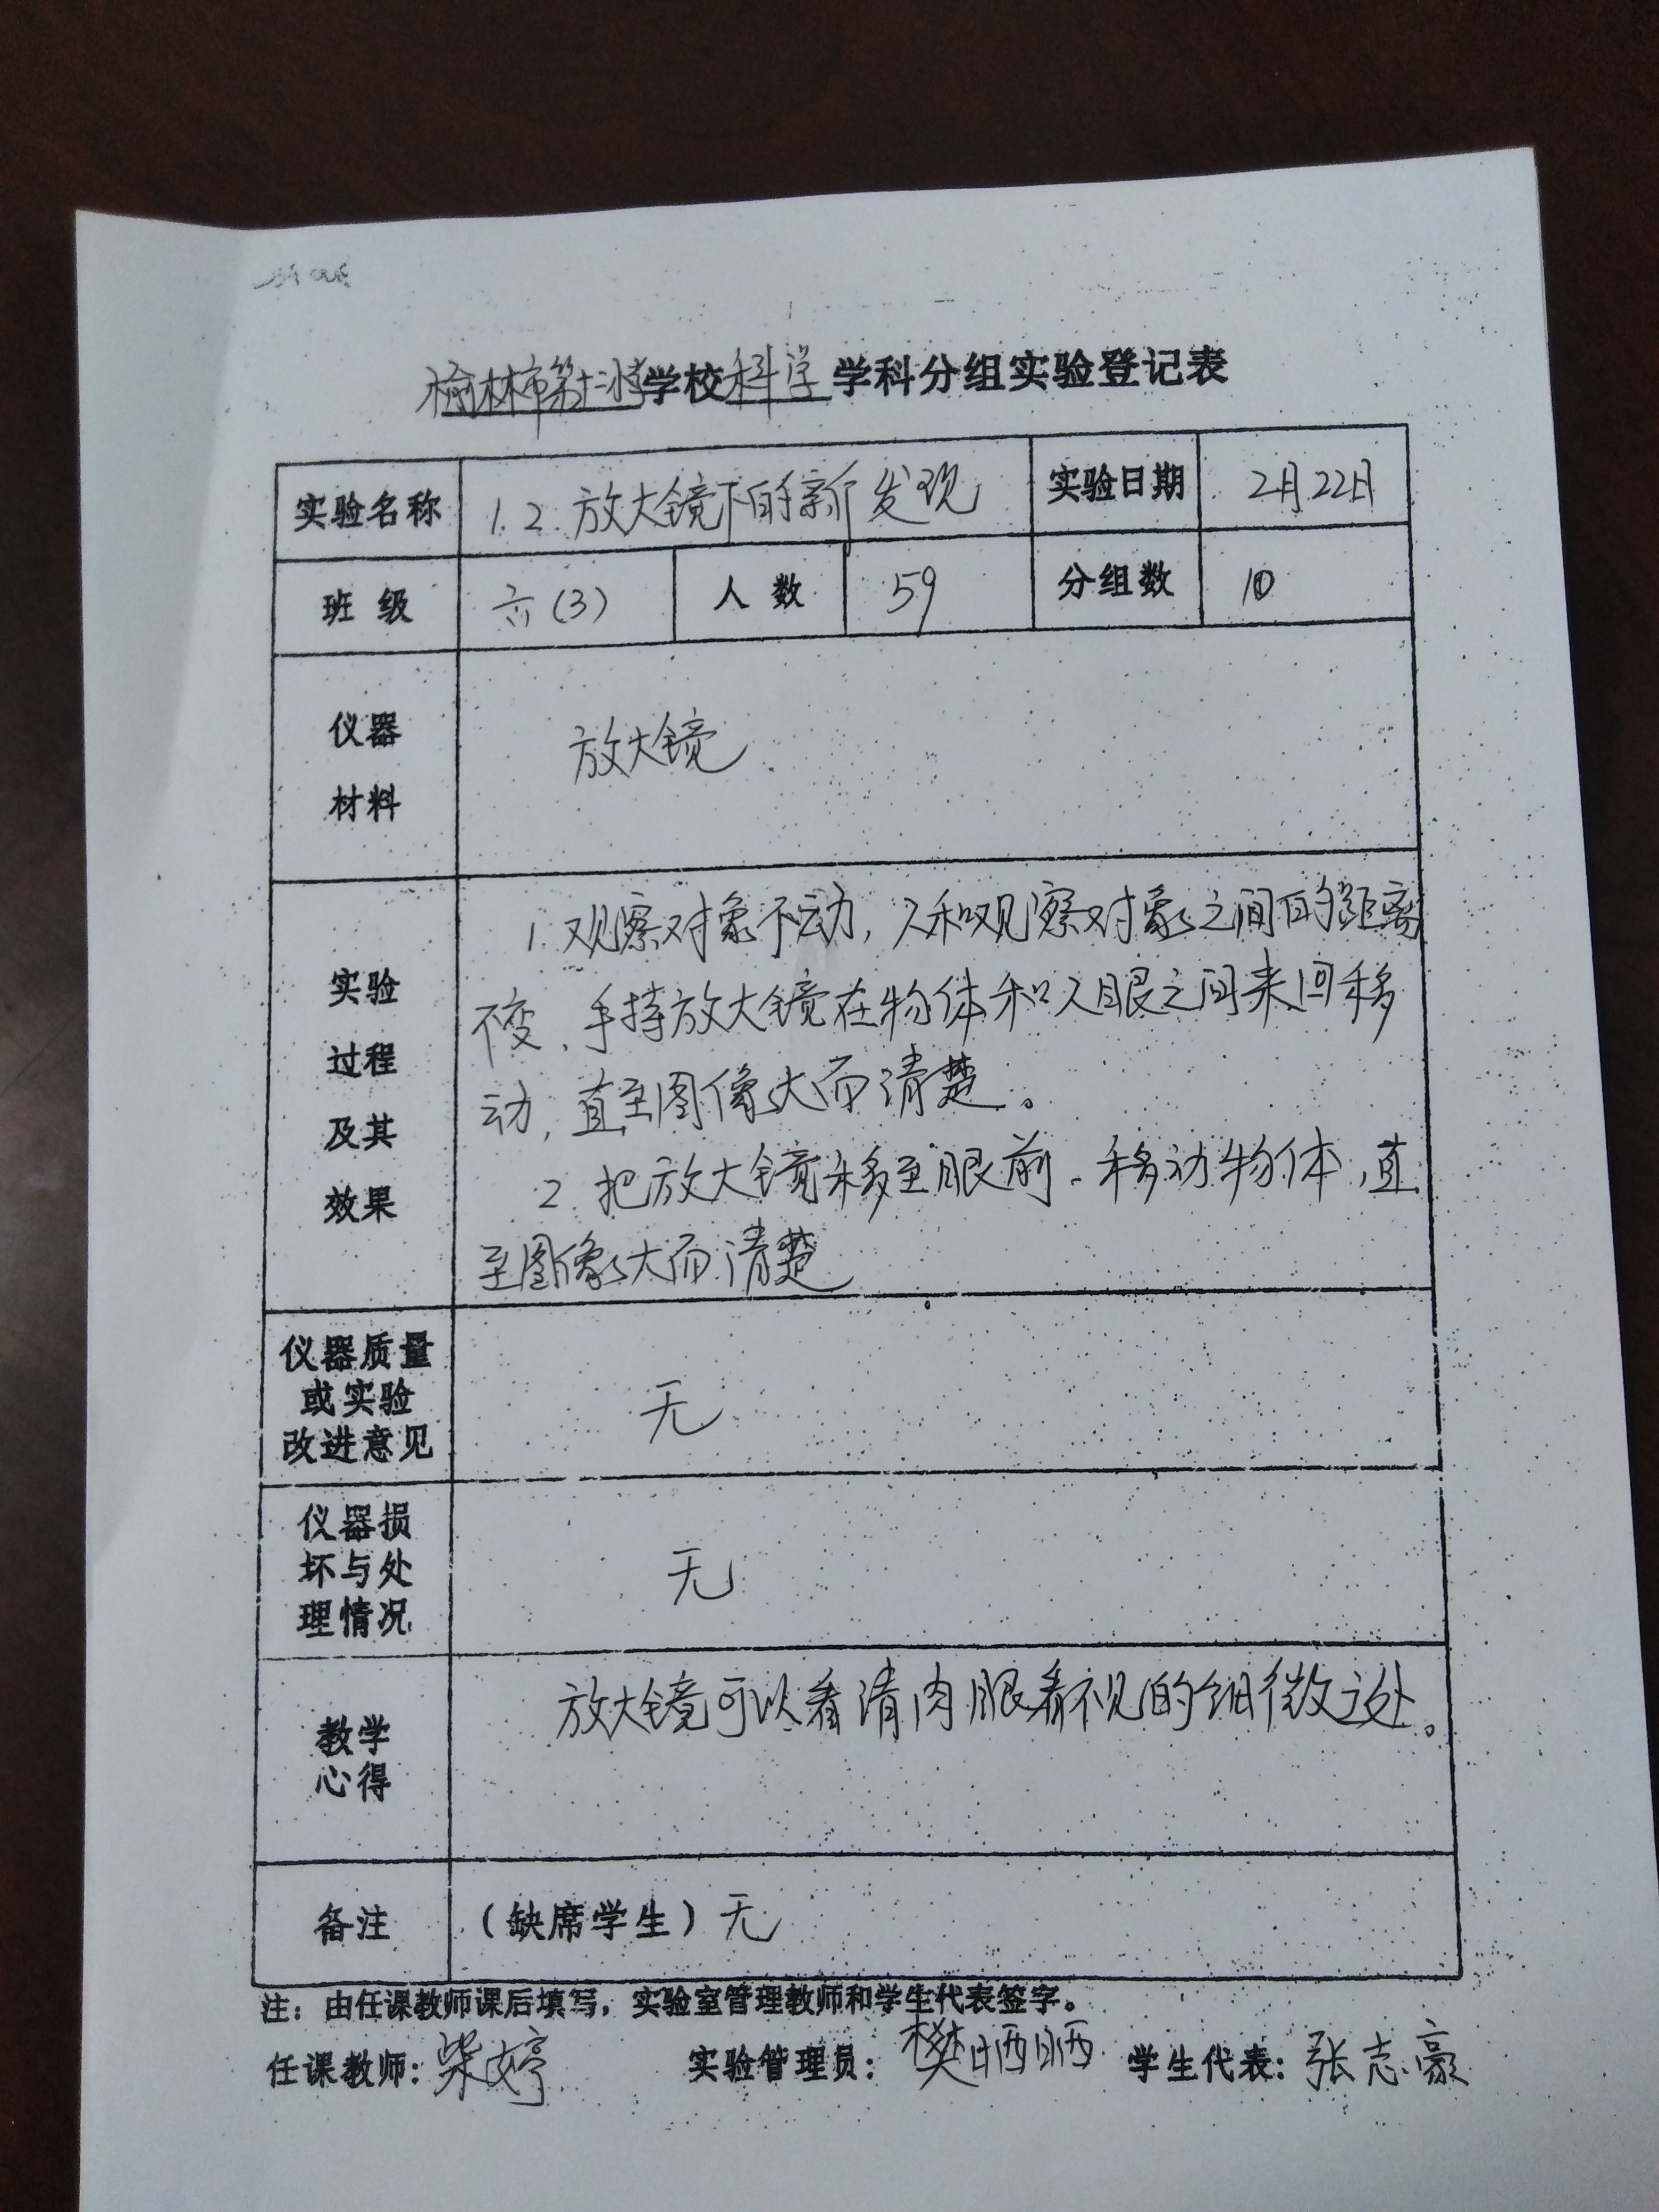 榆林市第十二小学校科学学科分组实验登记表
实验名称 1.2.放大镜下的新发现 实验日期 2月22日
班级 六(3) 人数 59 分组数 10
仪器
材料
放大镜
实验
过程
及其
效果
1.观察对象不动,人和观察对象之间的距离
不变、手持放大镜在物体和人眼之间来回移
动,直至图像大而清楚。
2.把放大镜移至眼前.移动物体,直
至图像大而清楚
仪器质量
或实验
改进意见
无
仪器损
坏与处
理情况
无
教学
心得
放大镜可以看清肉眼看不见的细微之处。
备注 (缺席学生)无
注:由任课教师课后填写,实验室管理教师和学生代表签字。
任课教师:柴婷 实验管理员:樊晒晒 学生代表:张志豪